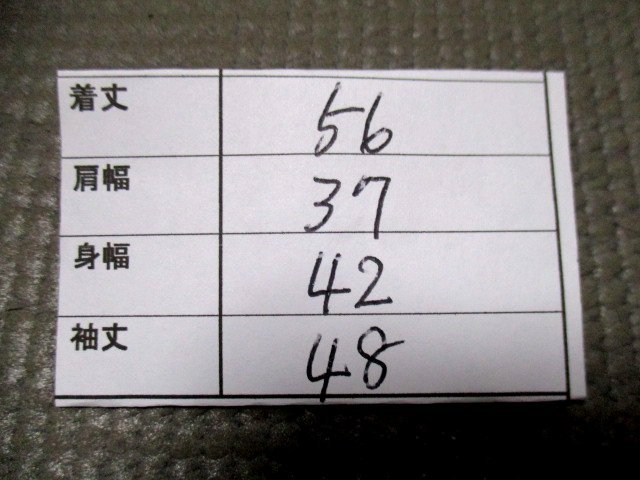 着丈 56
肩幅 37
身幅 42
袖丈 48